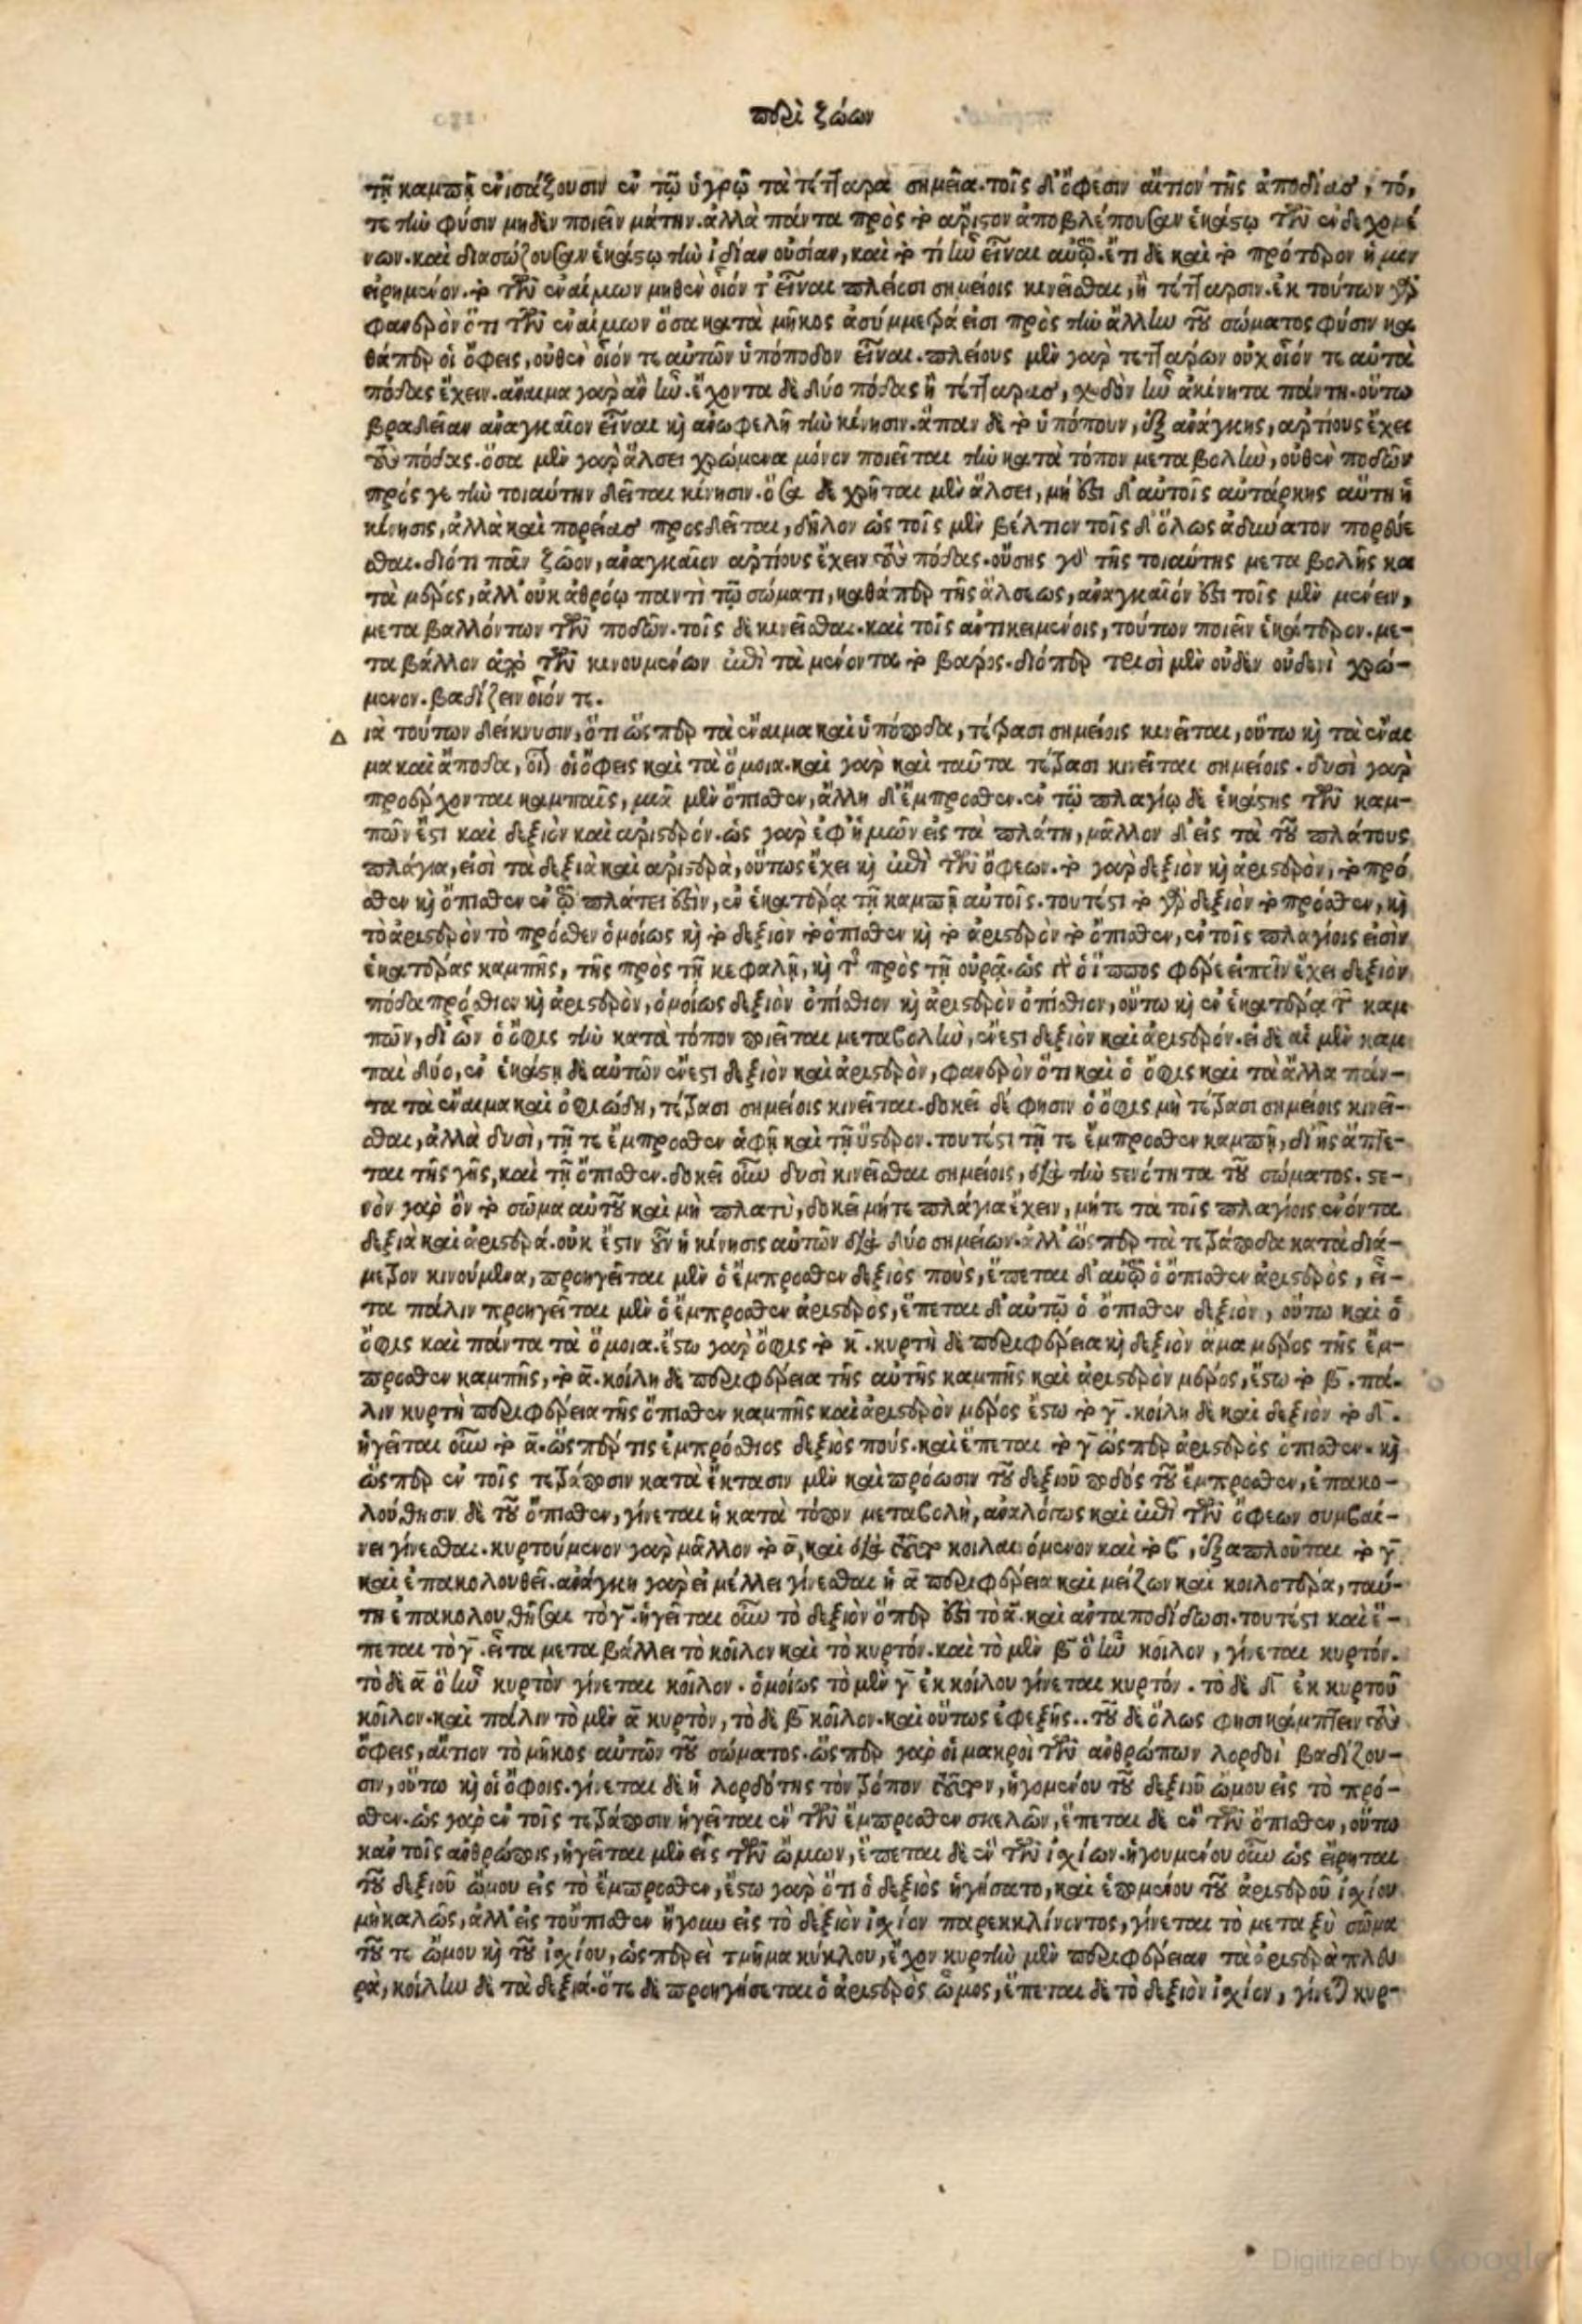 περὶ ζώων
τῇ καμπῇ ἐνισάζουσιν ἐν τῷ ὑγρῷ τὰ τέτταρα σημεῖα. τοῖς δ' ὄφεσιν αἴτιον τῆς ἀποδίας, τό,
τε τὴν φύσιν μηδὲν ποιεῖν μάτην. ἀλλὰ πάντα πρὸς τὸ ἄριστον ἀποβλέπουσαν ἑκάστῳ τῶν ἐνδεχομέ
νων. καὶ διασώζουσαν ἑκάστῳ τὴν ἰδίαν οὐσίαν, καὶ τὸ τί ἦν εἶναι αὐτῷ. ἔτι δὲ καὶ τὸ πρότερον ἡμῖν
εἰρημένον. τὸ τῶν ἐναίμων μηθὲν οἷόν τ' εἶναι πλείοσι σημείοις κινεῖσθαι, ἢ τέτταρσιν. ἐκ τούτων γὰρ
φανερὸν ὅτι τῶν ἐναίμων ὅσα κατὰ μῆκος ἀσύμμετρά εἰσι πρὸς τὴν ἄλλην τοῦ σώματος φύσιν κα
θάπερ οἱ ὄφεις, οὐθὲν οἷόν τε αὐτῶν ὑπόποδον εἶναι. πλείους μὲν γὰρ τεττάρων οὐχ οἷόν τε αὐτὰ
πόδας ἔχειν. ἄναιμα γὰρ ἂν ἦν. ἔχοντα δὲ δύο πόδας ἢ τέτταρας, σχεδὸν ἦν ἀκίνητα πάντη. οὕτω
βραδεῖαν ἀναγκαῖον εἶναι καὶ ἀνωφελῆ τὴν κίνησιν. ἅπαν δὲ τὸ ὑπόπουν, ἐξ ἀνάγκης, ἀρτίους ἔχει
τοὺς πόδας. ὅσα μὲν γὰρ ἅλσει χρώμενα μόνον ποιεῖται τὴν κατὰ τόπον μεταβολὴν, οὐθὲν ποδῶν
πρός γε τὴν τοιαύτην δεῖται κίνησιν. ὅσα δὲ χρῆται μὲν ἅλσει, μή ἐστι δ' αὐτοῖς αὐτάρκης αὕτη ἡ
κίνησις, ἀλλὰ καὶ πορείας προσδεῖται, δῆλον ὡς τοῖς μὲν βέλτιον τοῖς δ' ὅλως ἀδύνατον πορεύε
σθαι. διότι πᾶν ζῶον, ἀναγκαῖον ἀρτίους ἔχειν τοὺς πόδας. οὔσης γὰρ τῆς τοιαύτης μεταβολῆς κα
τὰ μέρος, ἀλλ' οὐκ ἀθρόῳ παντὶ τῷ σώματι, καθάπερ τῆς ἅλσεως, ἀναγκαῖόν ἐστι τοῖς μὲν μένειν,
μεταβαλλόντων τῶν ποδῶν. τοῖς δὲ κινεῖσθαι. καὶ τοῖς ἀντικειμένοις, τούτων ποιεῖν ἑκάτερον. με-
ταβάλλον ἀπὸ τῶν κινουμένων ἐπὶ τὰ μένοντα τὸ βάρος. διόπερ τρισὶ μὲν οὐδὲν οὐδενὶ χρώ-
μενον. βαδίζειν οἷόν τε.
Δ ιὰ τούτων δείκνυσιν, ὅτι ὥσπερ τὰ ἔναιμα καὶ ὑπόποδα, τέτρασι σημείοις κινεῖται, οὕτω καὶ τὰ ἔναι
μα καὶ ἄποδα, οἷον οἱ ὄφεις καὶ τὰ ὅμοια. καὶ γὰρ καὶ ταῦτα τέτρασι κινεῖται σημείοις. δυσὶ γὰρ
προσέρχονται καμπαῖς, μιᾷ μὲν ὄπισθεν, ἄλλη δ' ἔμπροσθεν. ἐν τῷ πλαγίῳ δὲ ἑκάστης τῶν καμ-
πῶν ἔστι καὶ δεξιὸν καὶ ἀριστερόν. ὡς γὰρ ἐφ' ἡμῶν εἰς τὰ πλάτη, μᾶλλον δ' εἰς τὰ τοῦ πλάτους
πλάγια, εἰσὶ τὰ δεξιὰ καὶ ἀριστερὰ, οὕτως ἔχει καὶ ἐπὶ τῶν ὄφεων. τὸ γὰρ δεξιὸν καὶ ἀριστερὸν, τὸ πρό
σθεν καὶ ὄπισθεν ἐν τῷ πλάτει ἐστὶν, ἐν ἑκατέρᾳ τῇ καμπῇ αὐτοῖς. τουτέστι τὸ γὰρ δεξιὸν τὸ πρόσθεν, καὶ
τὸ ἀριστερὸν τὸ πρόσθεν ὁμοίως καὶ τὸ δεξιὸν τὸ ὄπισθεν καὶ τὸ ἀριστερὸν τὸ ὄπισθεν, ἐν τοῖς πλαγίοις εἰσὶν
ἑκατέρας καμπῆς, τῆς πρὸς τῇ κεφαλῇ, καὶ τῆς πρὸς τῇ οὐρᾷ. ὡς γὰρ ὁ ἵππος φέρε εἰπεῖν ἔχει δεξιὸν
πόδα πρόσθιον καὶ ἀριστερὸν, ὁμοίως δεξιὸν ὀπίσθιον καὶ ἀριστερὸν ὀπίσθιον, οὕτω καὶ ἐν ἑκατέρᾳ τῶν καμ
πῶν, δι' ὧν ὁ ὄφις τὴν κατὰ τόπον ποιεῖται μεταβολὴν, ἔνεστι δεξιὸν καὶ ἀριστερόν. εἰ δὲ αἱ μὲν καμ
παὶ δύο, ἐν ἑκάστῃ δὲ αὐτῶν ἔνεστι δεξιὸν καὶ ἀριστερὸν, φανερὸν ὅτι καὶ ὁ ὄφις καὶ τὰ ἄλλα πάν-
τα τὰ ἔναιμα καὶ ὀφιώδη, τέτρασι σημείοις κινεῖται. δοκεῖ δέ φησιν ὁ ὄφις μὴ τέτρασι σημείοις κινεῖ-
σθαι, ἀλλὰ δυσὶ, τῇ τε ἔμπροσθεν ἁφῇ καὶ τῇ ὕστερον. τουτέστι τῇ τε ἔμπροσθεν καμπῇ, δι' ἧς ἅπτε-
ται τῆς γῆς, καὶ τῇ ὄπισθεν. δοκεῖ οὖν δυσὶ κινεῖσθαι σημείοις, διὰ τὴν στενότητα τοῦ σώματος. στε-
νὸν γὰρ ὂν τὸ σῶμα αὐτοῦ καὶ μὴ πλατὺ, δοκεῖ μήτε πλάγια ἔχειν, μήτε τὰ τοῖς πλαγίοις ἐνόντα
δεξιὰ καὶ ἀριστερά. οὐκ ἔστιν οὖν ἡ κίνησις αὐτῶν διὰ δύο σημείων. ἀλλ' ὥσπερ τὰ τετράποδα κατὰ διά-
μετρον κινούμενα, προηγεῖται μὲν ὁ ἔμπροσθεν δεξιὸς ποὺς, ἕπεται δ' αὐτῷ ὁ ὄπισθεν ἀριστερὸς, εἶ-
τα πάλιν προηγεῖται μὲν ὁ ἔμπροσθεν ἀριστερὸς, ἕπεται δ' αὐτῷ ὁ ὄπισθεν δεξιὸν, οὕτω καὶ ὁ
ὄφις καὶ πάντα τὰ ὅμοια. ἔστω γὰρ ὄφις τὸ κ̄. κυρτὴ δὲ περιφέρεια καὶ δεξιὸν ἅμα μέρος τῆς ἔμ-
προσθεν καμπῆς, τὸ ᾱ. κοίλη δὲ περιφέρεια τῆς αὐτῆς καμπῆς καὶ ἀριστερὸν μέρος, ἔστω τὸ β̄. πά-
λιν κυρτὴ περιφέρεια τῆς ὄπισθεν καμπῆς καὶ ἀριστερὸν μέρος ἔστω τὸ γ̄. κοίλη δὲ καὶ δεξιὸν τὸ δ̄.
ἡγεῖται οὖν τὸ ᾱ. ὥσπερ τις ἐμπρόσθιος δεξιὸς πούς. καὶ ἕπεται τὸ γ̄ ὥσπερ ἀριστερὸς ὄπισθεν. καὶ
ὥσπερ ἐν τοῖς τετράποσιν κατὰ ἔκτασιν μὲν καὶ πρόωσιν τοῦ δεξιοῦ ποδὸς τοῦ ἔμπροσθεν, ἐπακο-
λούθησιν δὲ τοῦ ὄπισθεν, γίνεται ἡ κατὰ τόπον μεταβολὴ, ἀναλόγως καὶ ἐπὶ τῶν ὄφεων συμβαί-
νει γίνεσθαι. κυρτούμενον γὰρ μᾶλλον τὸ ᾱ, καὶ διὰ τοῦτο κοιλαινόμενον καὶ τὸ β, ἐξαπλοῦται τὸ γ̄
καὶ ἐπακολουθεῖ. ἀνάγκη γὰρ εἰ μέλλει γίνεσθαι ἡ ᾱ περιφέρεια καὶ μείζων καὶ κοιλοτέρα, ταύ-
τῃ ἐπακολουθῆσαι τὸ γ̄. ἡγεῖται οὖν τὸ δεξιὸν ὅπερ ἐστὶ τὸ ᾱ. καὶ ἀνταποδίδωσι. τουτέστι καὶ ἕ-
πεται τὸ γ̄. εἶτα μεταβάλλει τὸ κοῖλον καὶ τὸ κυρτόν. καὶ τὸ μὲν β̄ ὃ ἦν κοῖλον, γίνεται κυρτόν.
τὸ δὲ ᾱ ὃ ἦν κυρτὸν γίνεται κοῖλον. ὁμοίως τὸ μὲν γ̄ ἐκ κοίλου γίνεται κυρτόν. τὸ δὲ δ̄ ἐκ κυρτοῦ
κοῖλον. καὶ πάλιν τὸ μὲν ᾱ κυρτὸν, τὸ δὲ β̄ κοῖλον. καὶ οὕτως ἐφεξῆς.. τοῦ δὲ ὅλως φησὶ κάμπτειν τοὺς
ὄφεις, αἴτιον τὸ μῆκος αὐτῶν τοῦ σώματος. ὥσπερ γὰρ οἱ μακροὶ τῶν ἀνθρώπων λορδοὶ βαδίζου-
σιν, οὕτω καὶ οἱ ὄφοις. γίνεται δὲ ἡ λορδότης τὸν τρόπον τοῦτον, ἡγομένου τοῦ δεξιοῦ ὤμου εἰς τὸ πρό-
σθεν. ὡς γὰρ ἐν τοῖς τετράποσιν ἡγεῖται ἓν τῶν ἔμπροσθεν σκελῶν, ἕπεται δὲ ἓν τῶν ὄπισθεν, οὕτω
κἀν τοῖς ἀνθρώποις, ἡγεῖται μὲν εἷς τῶν ὤμων, ἕπεται δὲ ἓν τῶν ἰσχίων. ἡγουμένου οὖν ὡς εἴρηται
τοῦ δεξιοῦ ὤμου εἰς τὸ ἔμπροσθεν, ἔστω γὰρ ὅτι ὁ δεξιὸς ἡγήσατο, καὶ ἑπομένου τοῦ ἀριστεροῦ ἰσχίου
μὴ καλῶς, ἀλλ' εἰς τοὔπισθεν ἤγουν εἰς τὸ δεξιὸν ἰσχίον παρεκκλίνοντος, γίνεται τὸ μεταξὺ σῶμα
τοῦ τε ὤμου καὶ τοῦ ἰσχίου, ὡσπερεὶ τμῆμα κύκλου, ἔχον κυρτὴν μὲν περιφέρειαν τὰ ἀριστερὰ πλευ
ρὰ, κοίλην δὲ τὰ δεξιά. ὅτε δὲ προηγήσεται ὁ ἀριστερὸς ὦμος, ἕπεται δὲ τὸ δεξιὸν ἰσχίον, γίνεται κυρ-